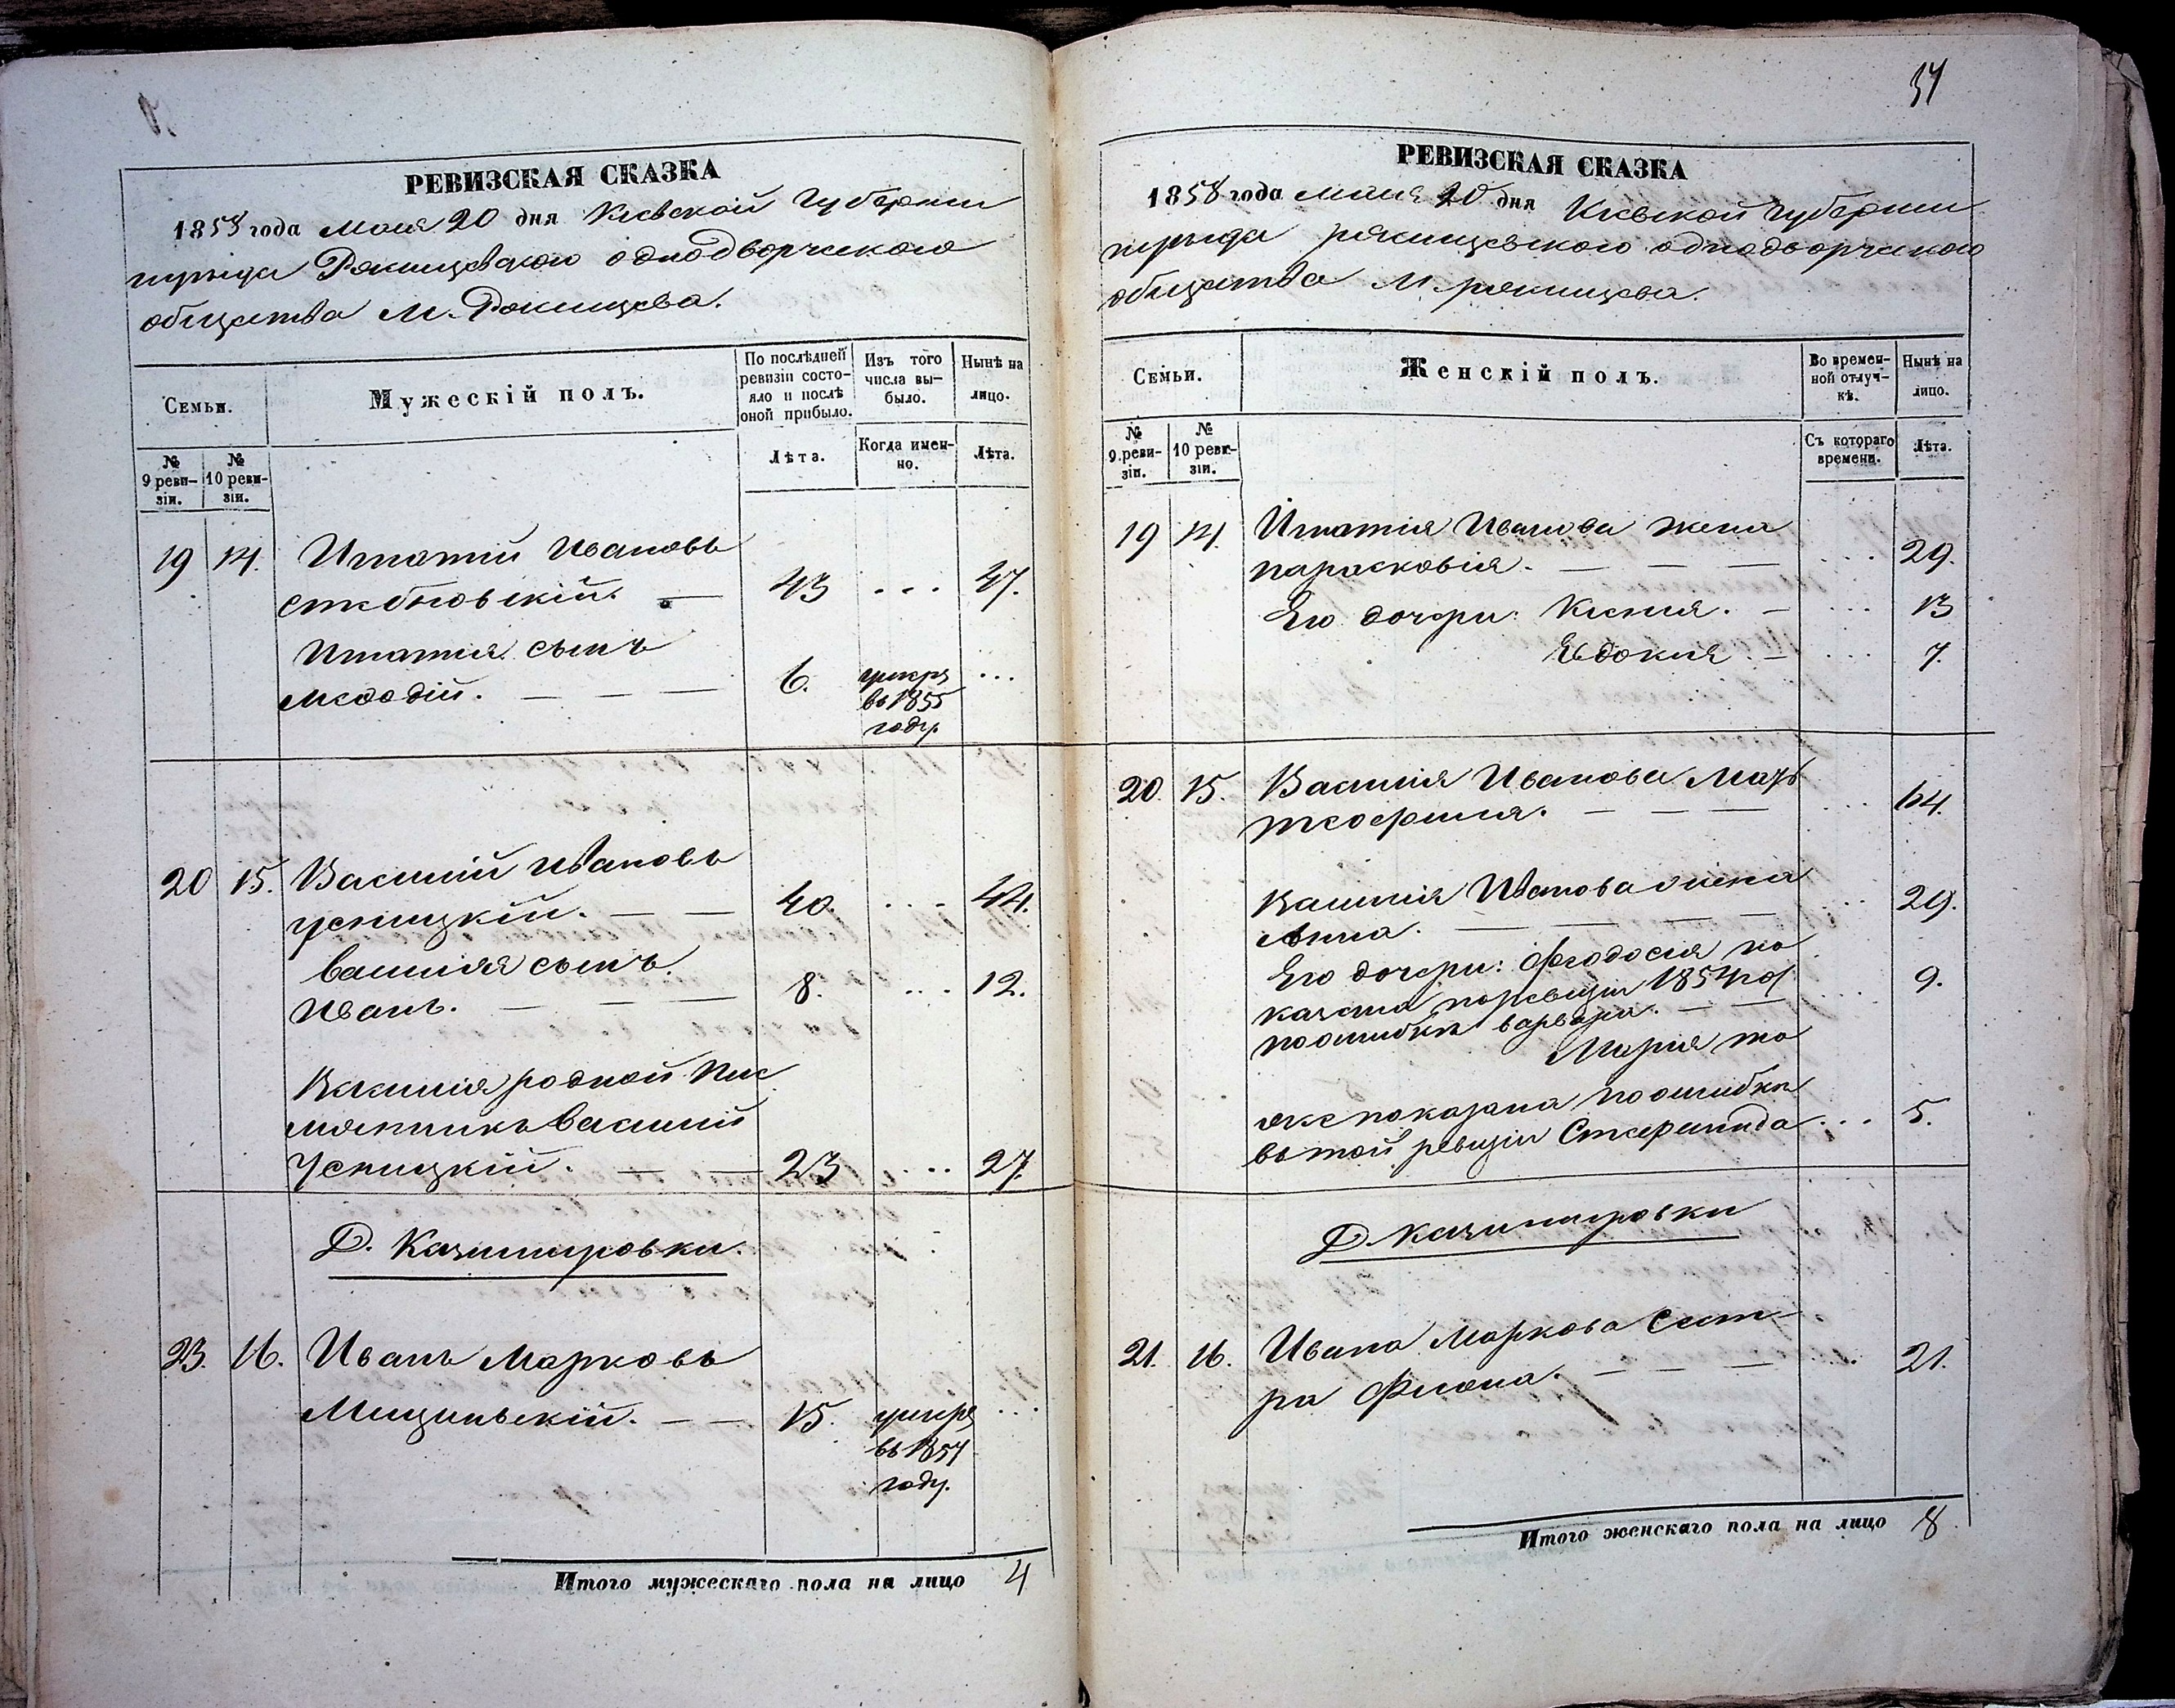 РЕВИЗСКАЯ СКАЗКА
1858 года Мая 20 дня Кіевской Губерніи
уезда одно­дворческаго
общества М.
Семьи.
Мужескій полъ.
По послѣдней ревизіи состо-
яло и послѣ оной прибыло.
Изъ того числа вы-
было.
Нынѣ на лицо.
№ 9 реви-
зіи.
№ 10 реви-
зіи.
Лѣта.
Когда имен-
но.
Лѣта.
19 14. Игнатій Ивановъ
43 ... 47.
Игнатія сынъ
Меѳодій. — — — 6. умеръ ...
въ 1855
году.
20 15. Василій Ивановъ
Усницкій. — — 40. ... 44.
Василія сынъ
Иванъ. — — — 8. ... 12.
Василія родной Пле
мянникъ Василій
Усницкій. — — 23 ... 27.
Д. Казимировки.
23. 16. Иванъ Марковъ
— — 15. умеръ ...
въ 1857
году.
Итого мужескаго пола на лицо 4
34
РЕВИЗСКАЯ СКАЗКА
1858 года Мая 20 дня Кіевской Губерніи
уезда однодворческаго
общества М.
Семьи.
Женскій полъ.
Во времен-
ной отлуч-
кѣ.
Нынѣ на лицо.
№ 9 реви-
зіи.
№ 10 реви-
зіи.
Съ котораго
времени.
Лѣта.
19 14. Игнатія Иванова жена
Парасковія. — — — ... 29.
Его дочери: Ксенія. — ... 13
Евдокія. — ... 7.
20. 15. Василія Иванова Мать
— — — ... 64.
Василія Иванова жена
Анна. — — — ... 29.
Его дочери: Феодосія по
казана по ревизіи 1854 год.
по ошибкѣ Варвара. — — ... 9.
Марія то
же показана по ошибкѣ
въ той ревизіи ... 5.
Д. Казимировки
21. 16. Ивана Маркова Сест-
ра — — — ... 21.
Итого женскаго пола на лицо 8.